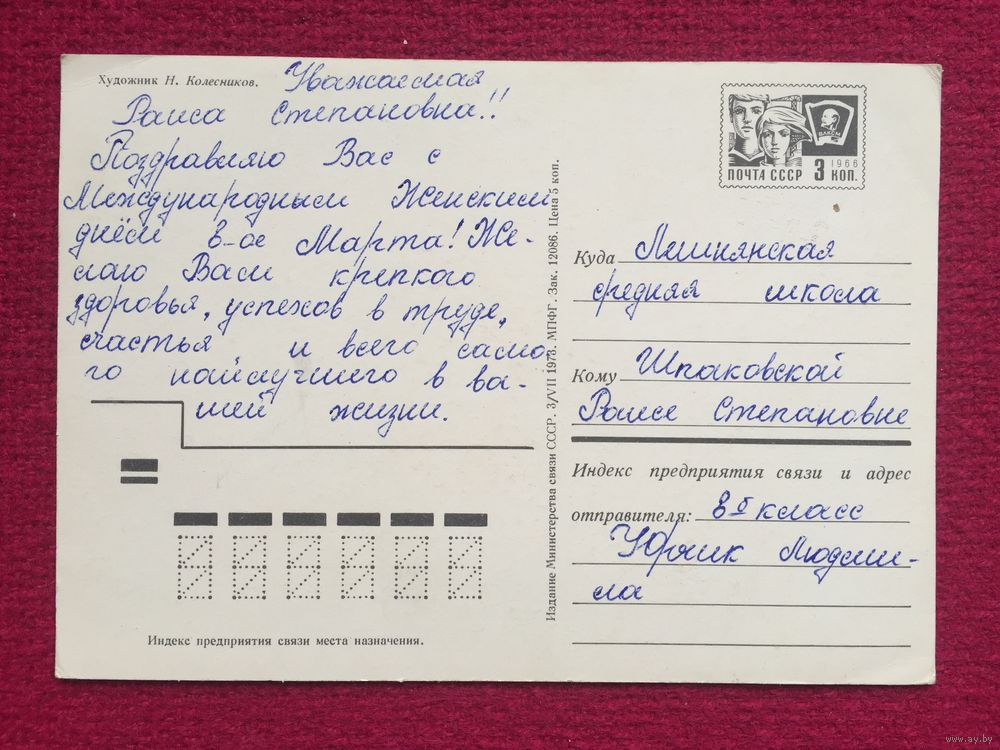 Художник Н. Колесников.
Уважаемая
Раиса Степановна!!
Поздравляю Вас с
Международным Женским
днём 8-ое Марта! Же-
лаю Вам крепкого
здоровья, успехов в труде,
счастья и всего само-
го найлучшего в ва-
шей жизни.
Индекс предприятия связи места назначения.
Издание Министерства связи СССР. 3/VII 1973. МПФГ. Зак. 12086. Цена 5 коп.
ВЛКСМ
1966
ПОЧТА СССР 3 КОП.
Куда Лешнянская
средняя школа
Кому Шпаковской
Раисе Степановне
Индекс предприятия связи и адрес
отправителя: 8 класс
Людми-
ла
www.ay.by